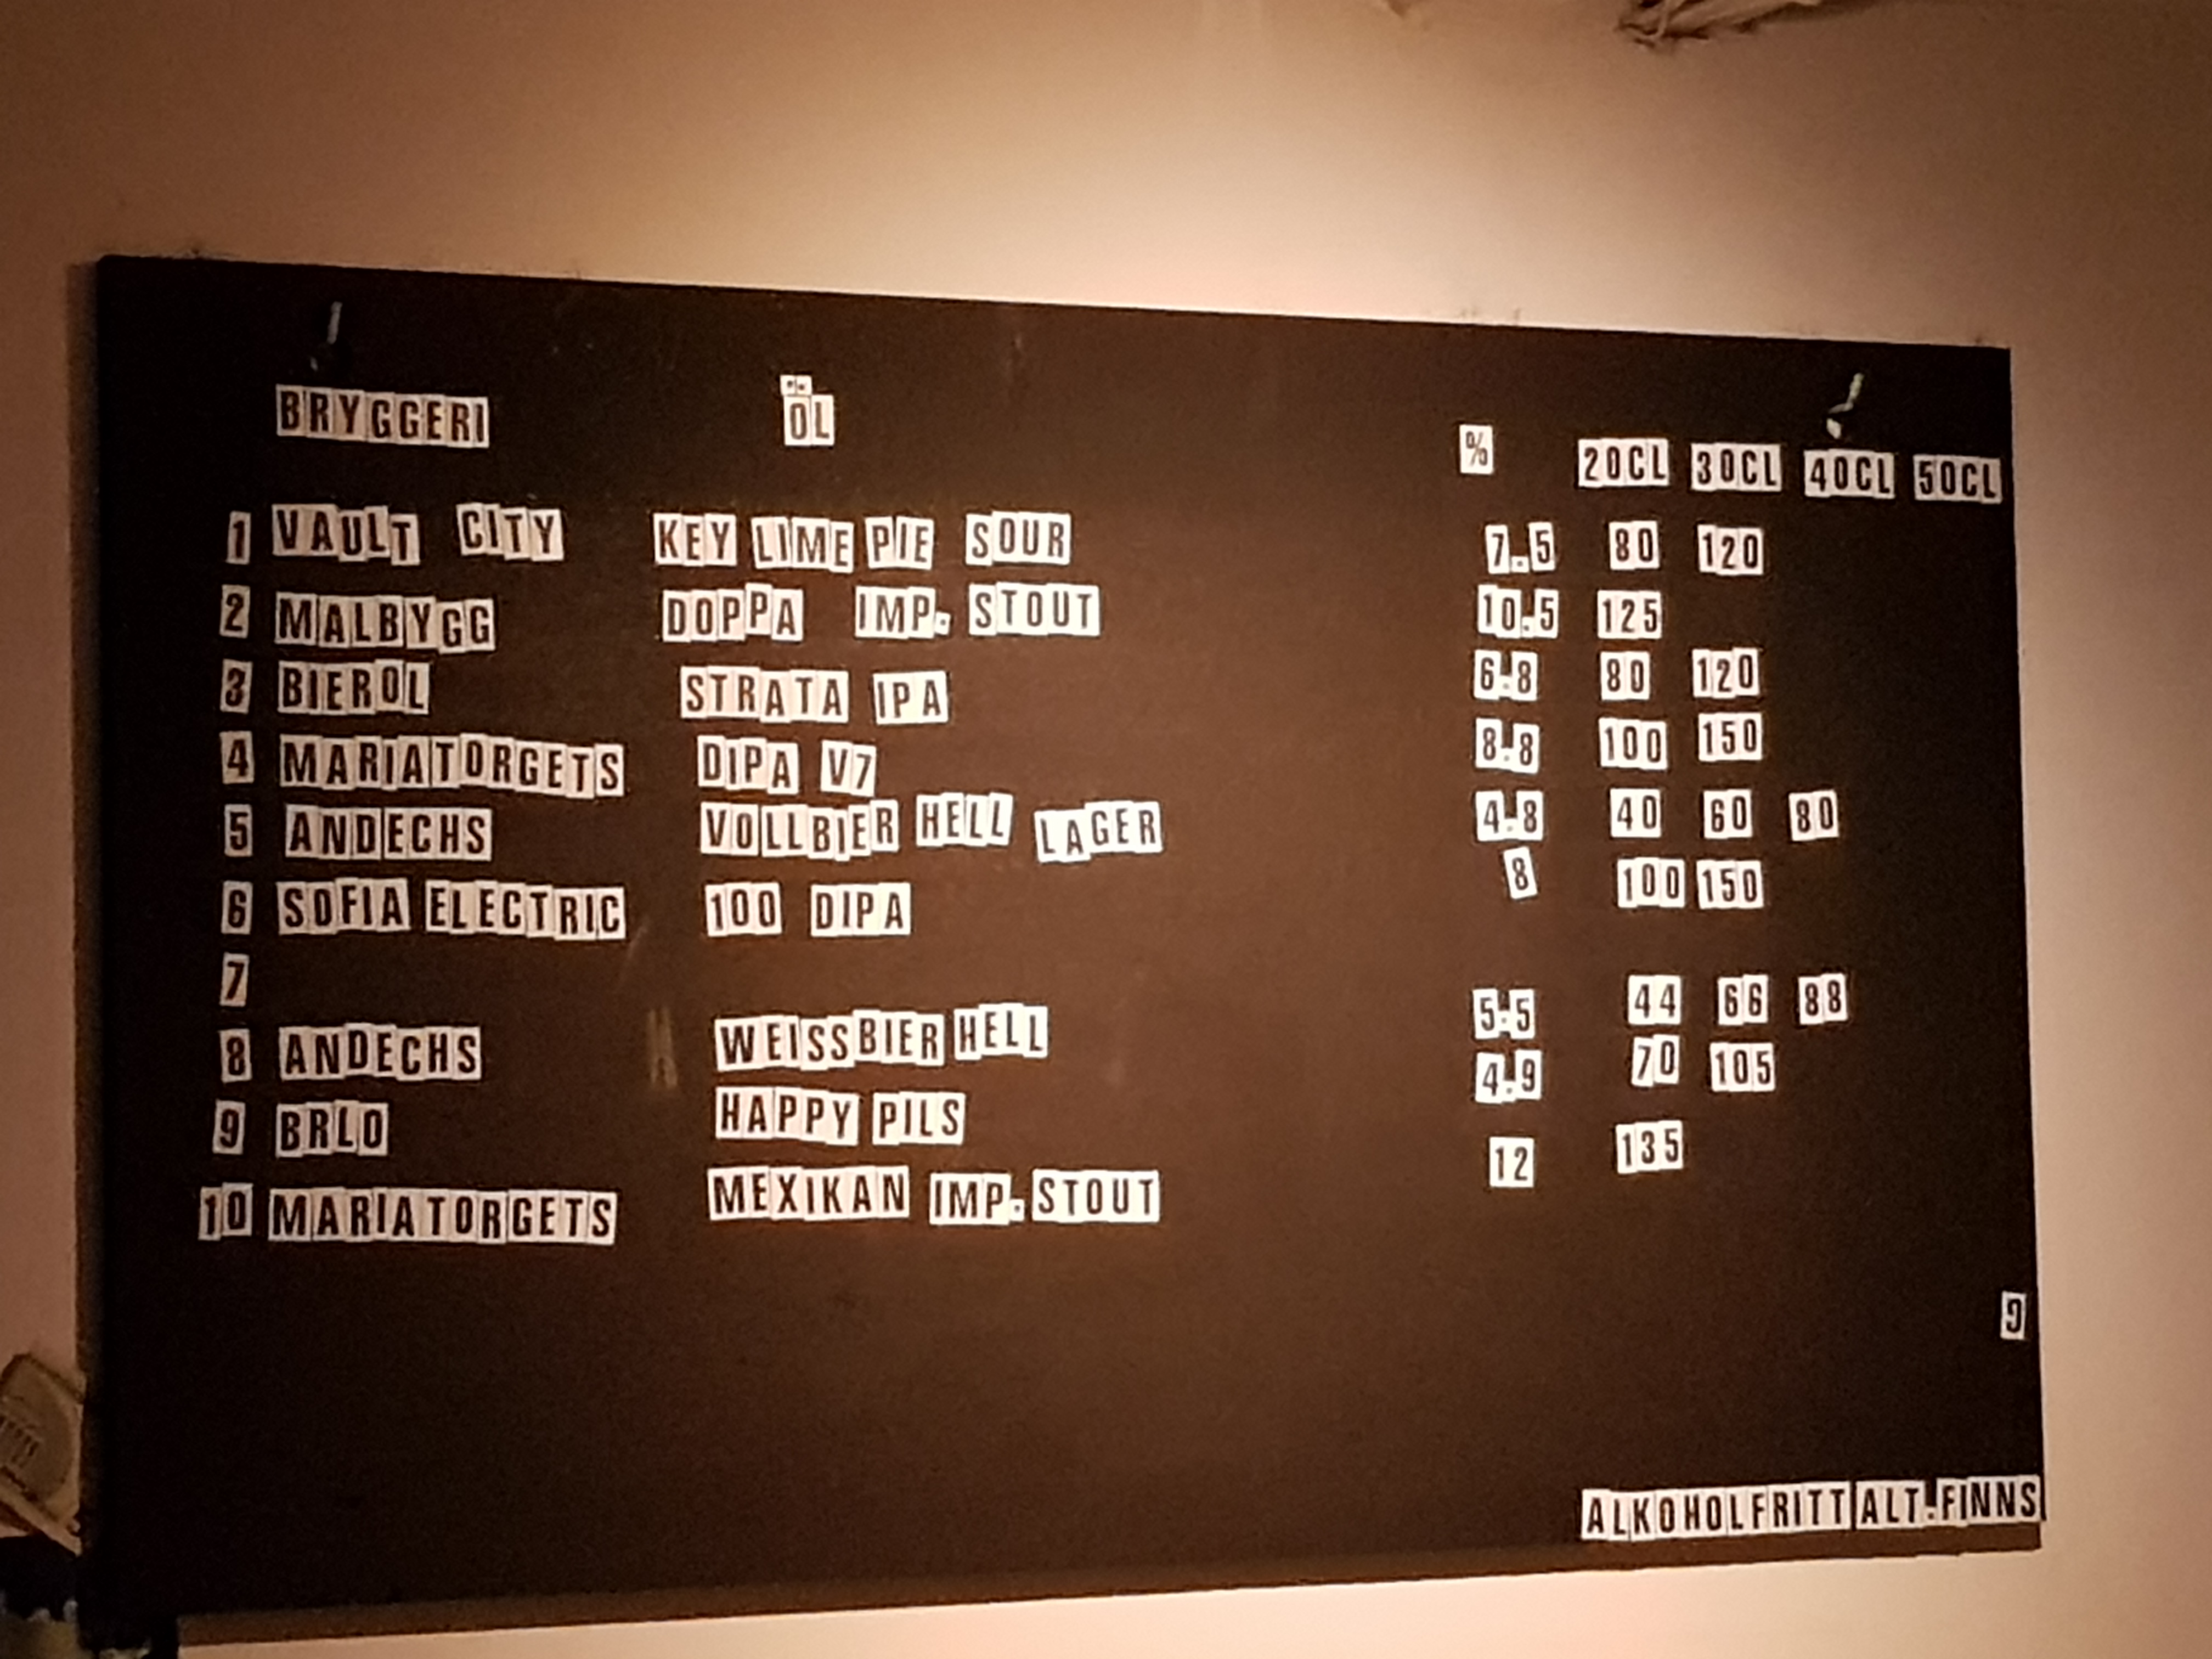 BRYGGERI ÖL % 20CL 30CL 40CL 50CL
1 VAULT CITY KEY LIME PIE SOUR 7.5 80 120
2 MALBYGG DOPPA IMP. STOUT 10.5 125
3 BIEROL STRATA IPA 6.8 80 120
4 MARIATORGETS DIPA V7 8.8 100 150
5 ANDECHS VOLLBIER HELL LAGER 4.8 40 60 80
6 SOFIA ELECTRIC 100 DIPA 8 100 150
7
8 ANDECHS WEISSBIER HELL 5.5 44 66 88
9 BRLO HAPPY PILS 4.9 70 105
10 MARIATORGETS MEXIKAN IMP. STOUT 12 135
ALKOHOLFRITT ALT. FINNS